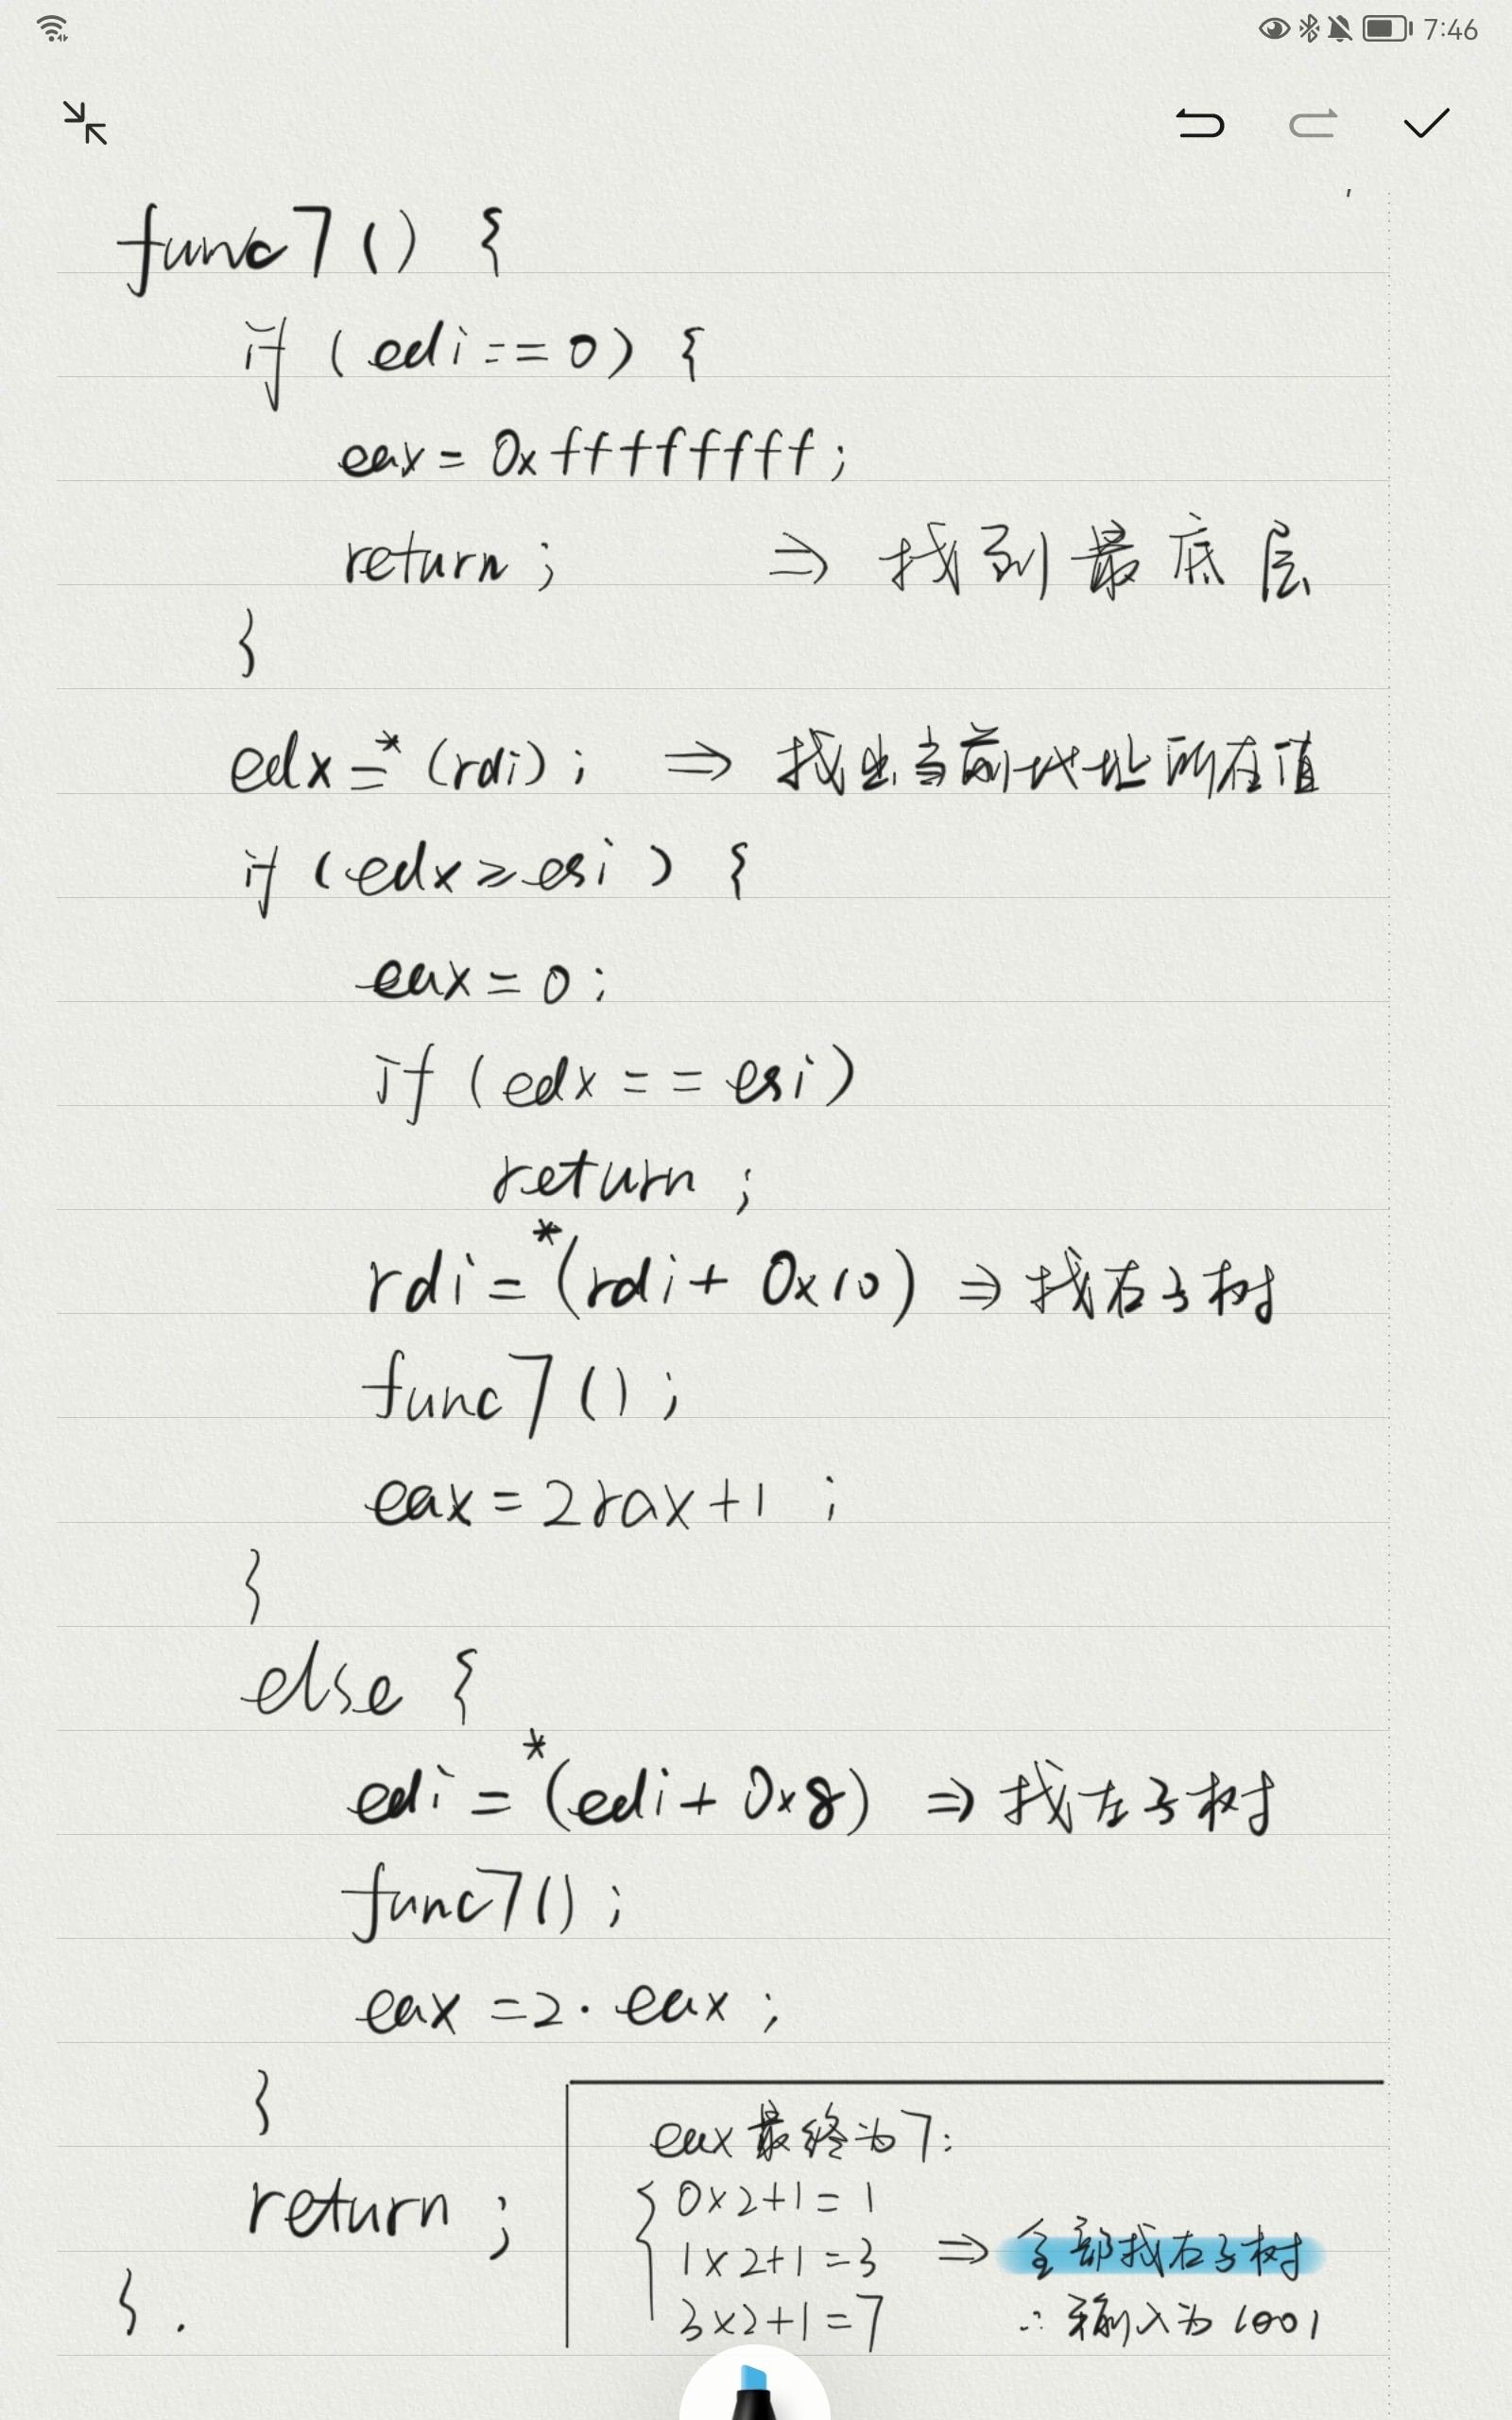 7:46
func7() {
if (edi == 0) {
eax = 0xffffffff;
return; ⇒ 找到最底层
}
edx = *(rdi); ⇒ 找出当前地址所在值
if (edx ≥ esi) {
eax = 0;
if (edx == esi)
return;
rdi = *(rdi + 0x10) ⇒ 找右子树
func7();
eax = 2rax+1;
}
else {
edi = *(edi + 0x8) ⇒ 找左子树
func7();
eax = 2·eax;
}
return;
}.
eax最终为7:
0×2+1=1
1×2+1=3 ⇒ 全部找右子树
3×2+1=7 ∴ 输入为 1001